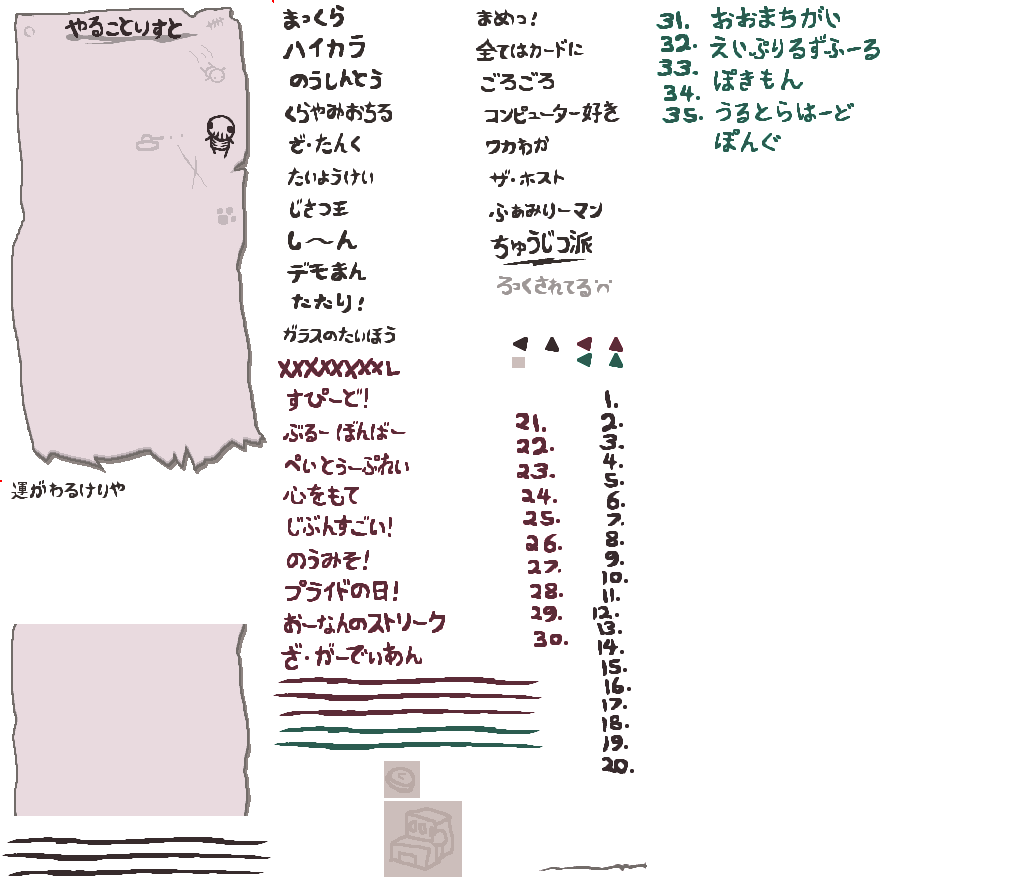 やることりすと
運がわるけりゃ
まっくら
ハイカラ
のうしんとう
くらやみおちる
ざ・たんく
たいようけい
じさつ王
し〜ん
デモまん
たたり!
ガラスのたいほう
XXXXXXXXL
すぴーど!
ぶるーぼんばー
ぺいとぅーぷれい
心をもて
じぶんすごい!
のうみそ!
プライドの日!
おーなんのストリーク
ざ・がーでぃあん
まめっ!
全てはカードに
ごろごろ
コンピューター好き
ワカわか
ザ・ホスト
ふぁみりーマン
ちゅうじつ派
ろっくされてる
21.
22.
23.
24.
25.
26.
27.
28.
29.
30.
1.
2.
3.
4.
5.
6.
7.
8.
9.
10.
11.
12.
13.
14.
15.
16.
17.
18.
19.
20.
31.
32.
33.
34.
35.
おおまちがい
えいぷりるずふーる
ぽきもん
うるとらはーど
ぽんぐ